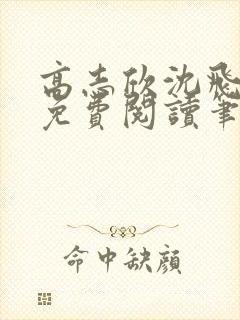 高志欣沈飛
免費閱讀筆
命中缺顏